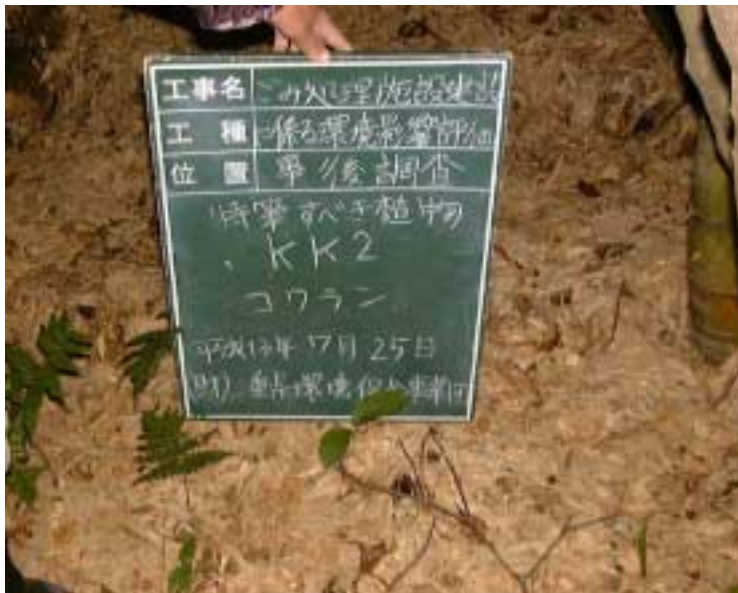 工事名 ごみ処理施設建設
工種 に係る環境影響評価
位置 事後調査
特筆すべき植物
KK2
コクラン
平成13年 7月25日
財) 環境保全事業団